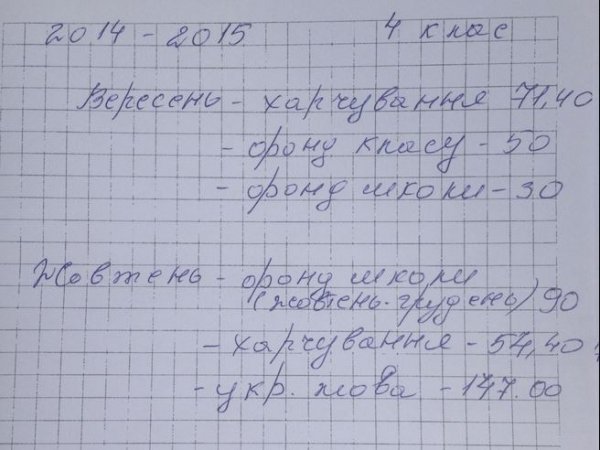 2014 - 2015 4 клас
Вересень - харчування 71,40
- фонд класу - 50
- фонд школи - 30
Жовтень - фонд школи
(жовтень-грудень) 90
- харчування - 54,40
- укр. мова - 147.00